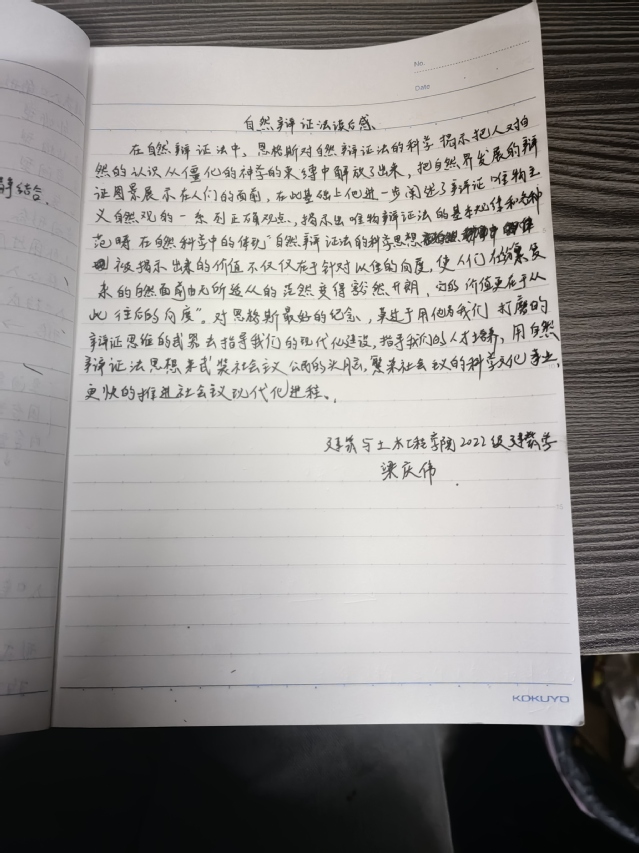 解结合.
No.
Date
自然辩证法读后感
在自然辩证法中, 恩格斯对自然辩证法的科学揭示把人对自
然的认识从僵化的神学的束缚中解放了出来, 把自然界发展的辩
证图景展示在人们的面前, 在此基础上他进一步阐述了辩证唯物主
义自然观的一系列正确观点、揭示出唯物辩证法的基本规律和各种
范畴在自然科学中的体现"自然辩证法的科学思想
被揭示出来的价值不仅仅在于针对从往的向度, 使人们在纷繁复
来的自然面前由无所适从的茫然变得豁然开朗, 它的价值更在于从
此往后的向度"。对恩格斯最好的纪念, 莫过于用他为我们打磨的
辩证思维的武器去指导我们的现代化建设, 指导我们的人才培养, 用自然
辩证法思想来武装社会主义公民的头脑, 繁荣社会主义的科学文化事业,
更快的推进社会主义现代化进程。
建筑与土木工程学院2022级建筑学
梁庆伟
KOKUYO